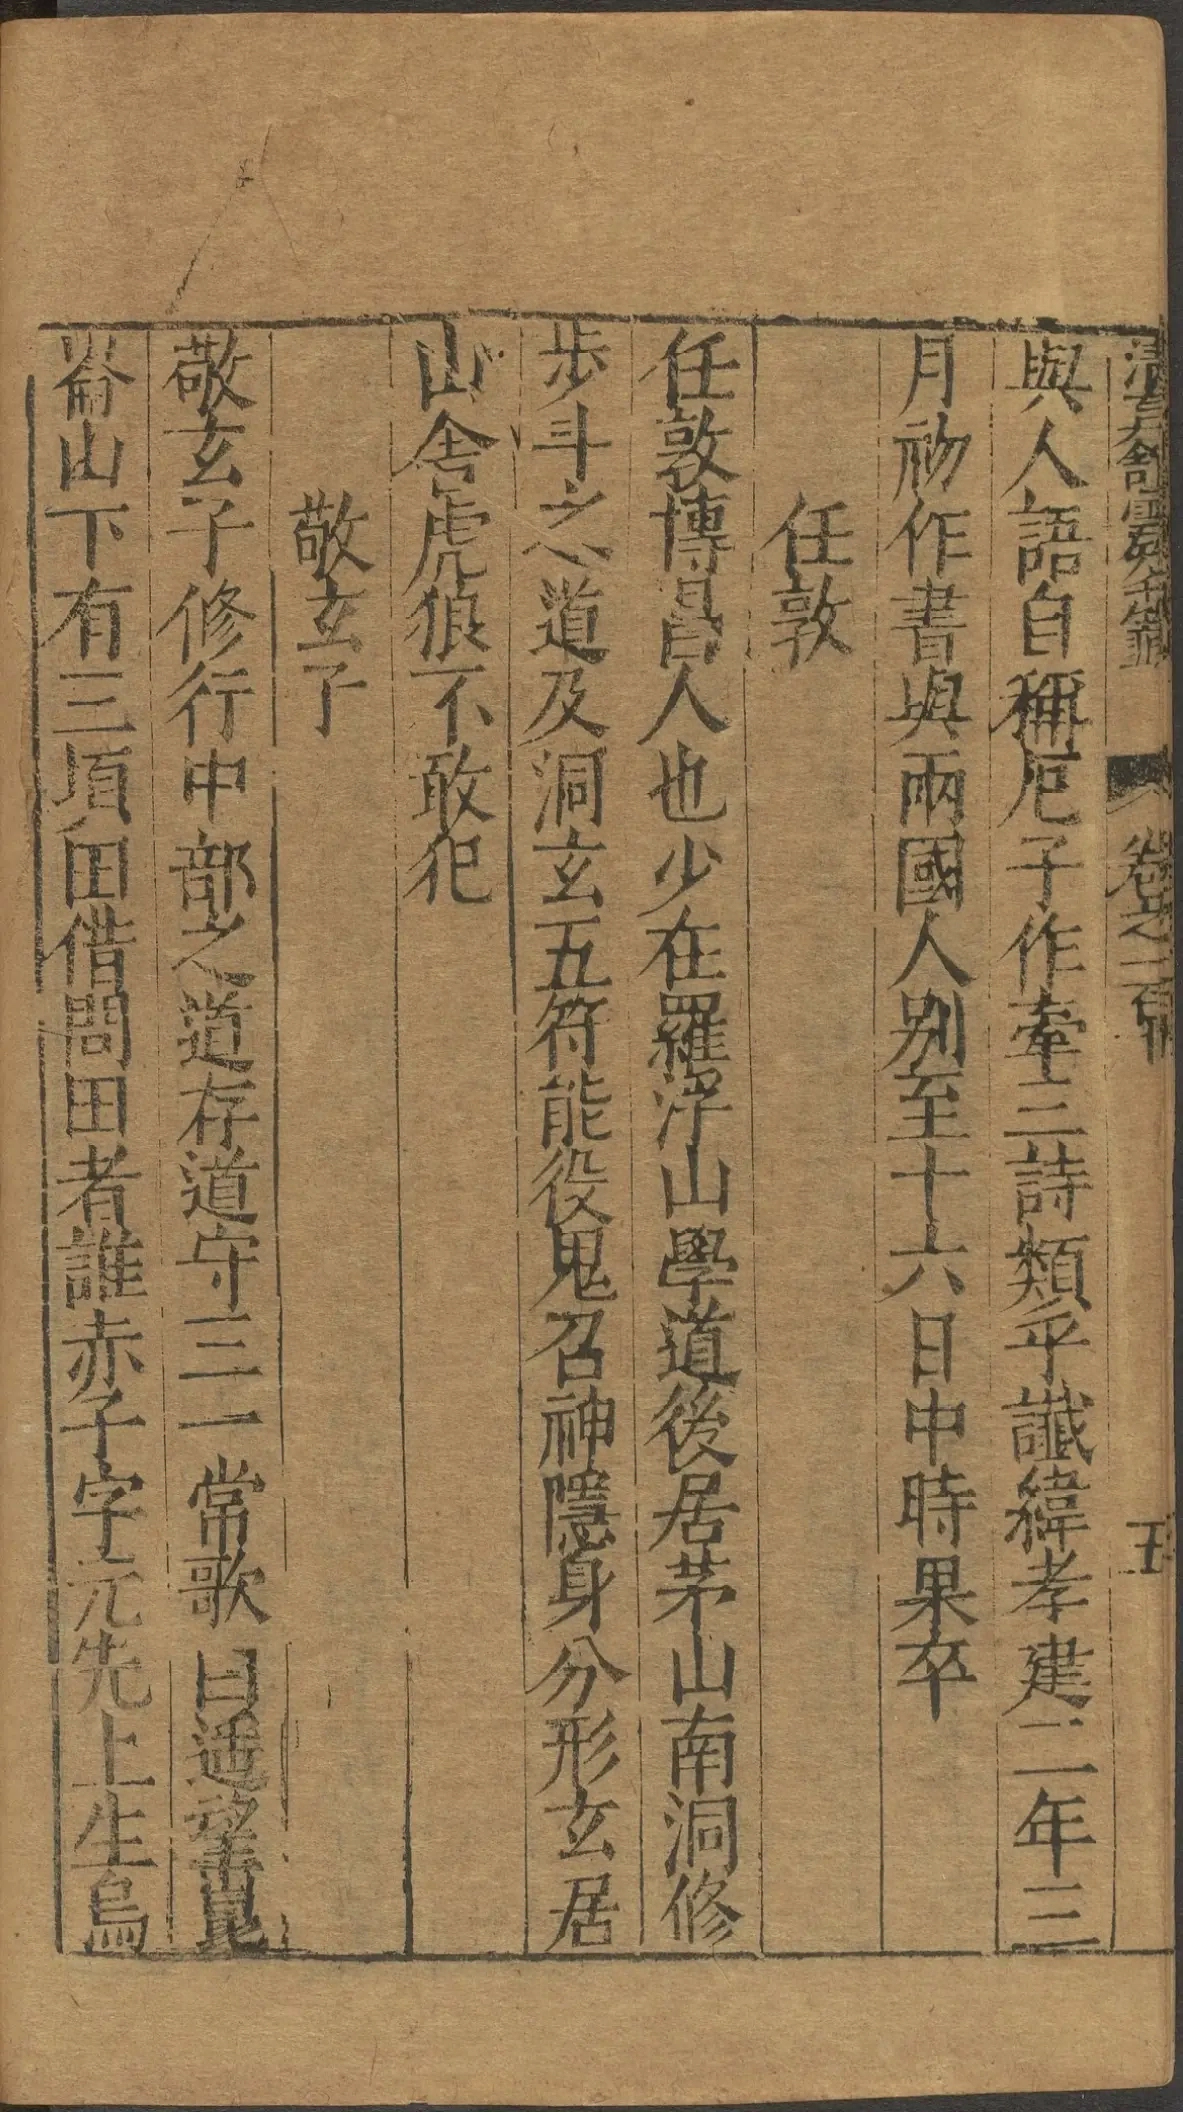 清真館雲笈七籤 卷之一百十 五
與人語自稱厄子作牽三詩類乎讖緯孝建二年三
月初作書與兩國人別至十六日中時果卒
任敦
任敦博昌人也少在羅浮山學道後居茅山南洞修
步斗之道及洞玄五符能役鬼召神隱身分形玄居
山舍虎狼不敢犯
敬玄子
敬玄子修行中部之道存道守三一常歌曰遥望崑
崙山下有三頃田借問田者誰赤子字元先上生烏